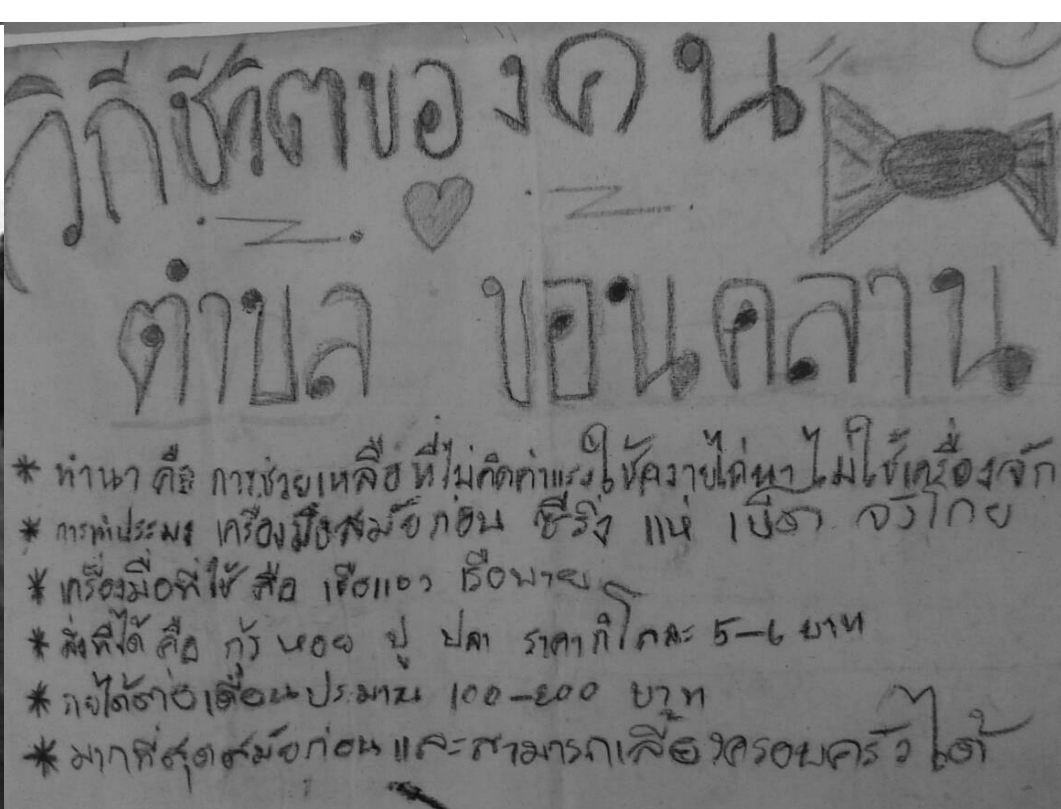 วิถีชีวิตของคน
ตำบล ขอนคลาน
* ทำนา คือ การช่วยเหลือที่ไม่คิดค่าแรง ใช้ควายไถนา ไม่ใช้เครื่องจัก
* การทำประมง เครื่องมือสมัยก่อน แห่
* เครื่องมือที่ใช้ คือ เรือแจว เรือพาย
* สิ่งที่ได้ คือ กุ้ง หอย ปู ปลา ราคากิโลละ 5-6 บาท
* รายได้ต่อเดือนประมาน 100-200 บาท
* มากที่สุดสมัยก่อนและสามารถเลี้ยงครอบครัวได้